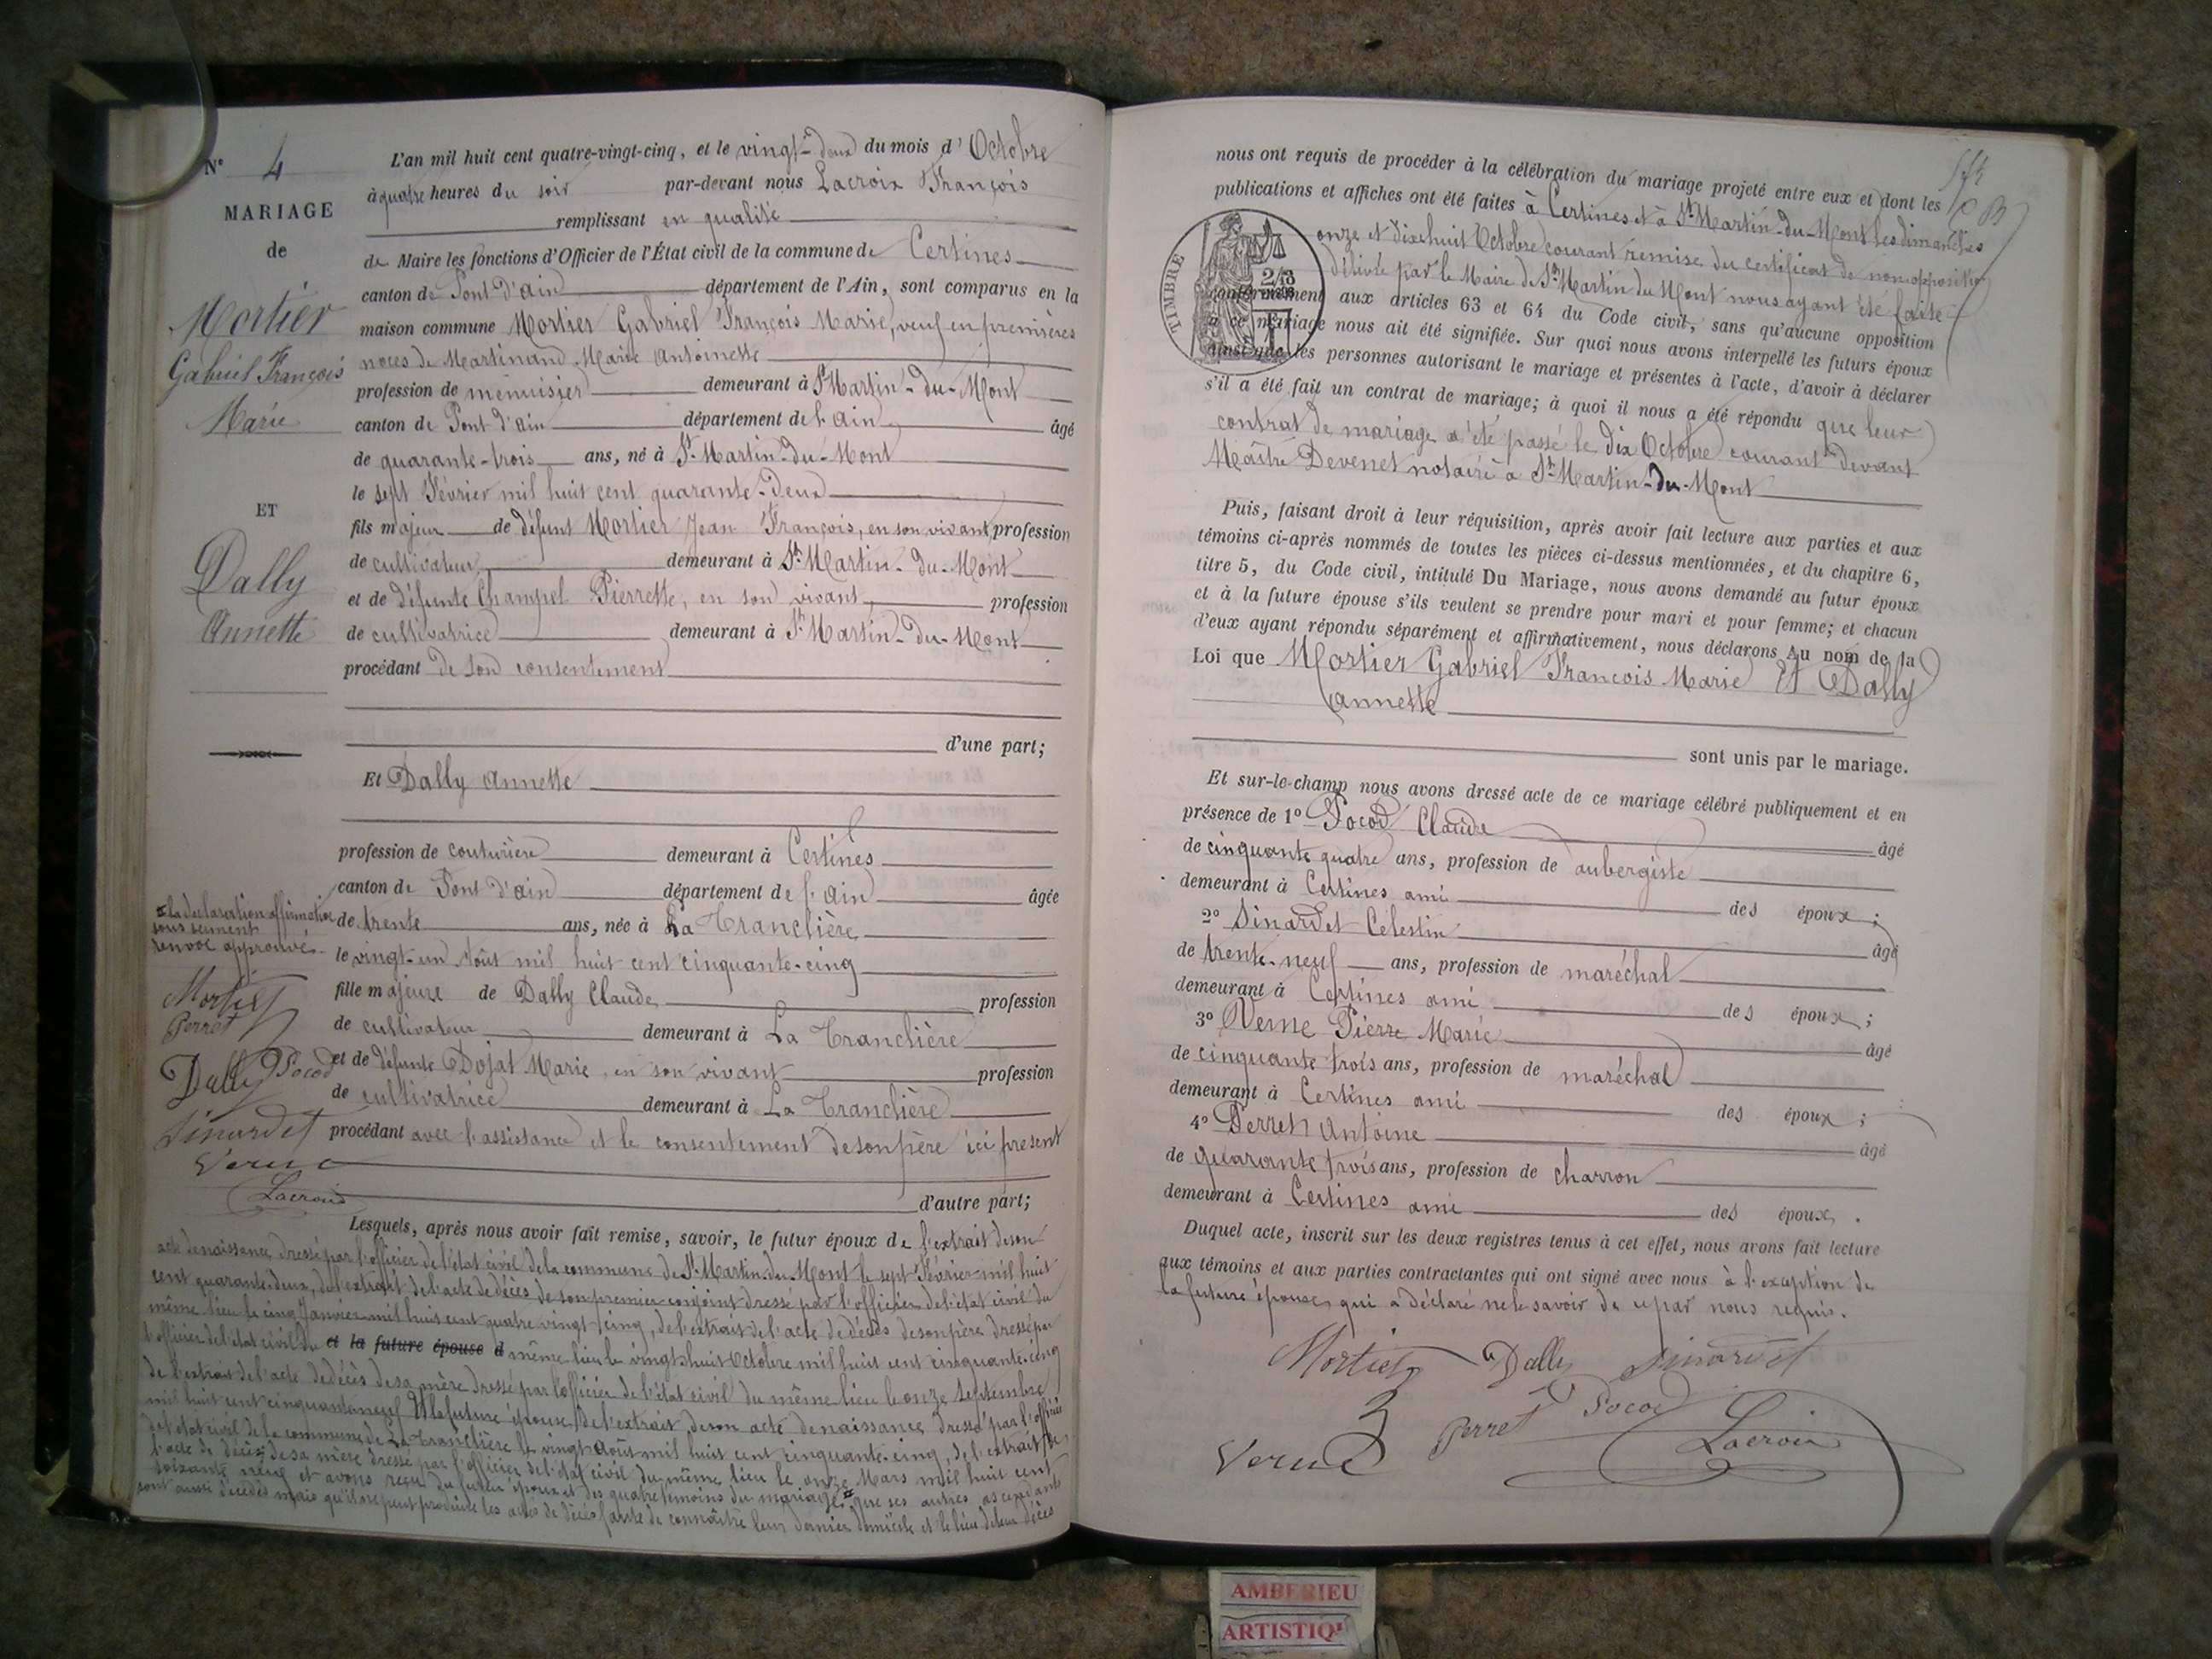 N° 4
MARIAGE
de
Mortier
Gabriel François
Marie
ET
Dally
Annette
L'an mil huit cent quatre-vingt-cinq, et le vingt-deux du mois d'Octobre
à quatre heures du soir par-devant nous Lacroix François
remplissant en qualité
de Maire les fonctions d'Officier de l'État civil de la commune de Certines
canton de Pont d'ain département de l'Ain, sont comparus en la
maison commune Mortier Gabriel François Marie, veuf en premières
noces de Martinand Marie Antoinette
profession de menuisier demeurant à St Martin-du-Mont
canton de Pont d'ain département de l'ain âgé
de quarante-trois ans, né à St Martin-du-Mont
le sept Février mil huit cent quarante-deux
fils majeur de défunt Mortier Jean François, en son vivant, profession
de cultivateur demeurant à St Martin-du-Mont
et de défunte Champel Pierrette, en son vivant, profession
de cultivatrice demeurant à St Martin-du-Mont
procédant de son consentement
d'une part;
Et Dally Annette
profession de couturière demeurant à Certines
canton de Pont d'ain département de l'ain âgée
de trente ans, née à La Tranclière
le vingt-un Août mil huit cent cinquante-cinq
fille majeure de Dally Claude, profession
de cultivateur demeurant à La Tranclière
et de défunte Dojat Marie, en son vivant profession
de cultivatrice demeurant à La Tranclière
procédant avec l'assistance et le consentement de son père ici present
d'autre part;
la déclaration affirmative
sous serment
renvoi approuvé
Mortier
Perret
Dally Pocod
Sinardet
Verne
Lacroix
Lesquels, après nous avoir fait remise, savoir, le futur époux de l'extrait de son
acte de naissance dressé par l'officier de l'état civil de la commune de St Martin-du-Mont le sept Février mil huit
cent quarante-deux, de l'extrait de l'acte de décès de son premier conjoint dressé par l'officier de l'état civil du
même lieu le cinq Janvier mil huit cent quatre vingt-cinq, de l'extrait de l'acte de décès de son père dressé par
l'officier de l'état civil du et la future épouse d même lieu le vingt-huit Octobre mil huit cent cinquante-cinq
de l'extrait de l'acte de décès de sa mère dressé par l'officier de l'état civil du même lieu le onze Septembre
mil huit cent cinquante neuf Et la future épouse de l'extrait de son acte de naissance dressé par l'officier
de l'état civil de la commune de La Tranclière le vingt Août mil huit cent cinquante-cinq, de l'extrait de
l'acte de décès de sa mère dressé par l'officier de l'état civil du même lieu le onze Mars mil huit cent
soixante neuf et avons reçu du futur époux et des quatre témoins du mariage que ses autres ascendants
sont aussi décédés mais qu'il ne peut produire les actes de décès faute de connaître leur dernier domicile et le lieu de leur décès
nous ont requis de procéder à la célébration du mariage projeté entre eux et dont les
publications et affiches ont été faites à Certines et à St Martin-du-Mont les dimanches
onze et dix-huit Octobre courant remise du certificat de non opposition
délivré par le Maire de St Martin du Mont nous ayant été faite
TIMBRE
conformément aux articles 63 et 64 du Code civil, sans qu'aucune opposition
à ce mariage nous ait été signifiée. Sur quoi nous avons interpellé les futurs époux
ainsi que les personnes autorisant le mariage et présentes à l'acte, d'avoir à déclarer
s'il a été fait un contrat de mariage; à quoi il nous a été répondu que leur
contrat de mariage a été passé le dix Octobre courant devant
Maître Devenet notaire à St Martin-du-Mont
Puis, faisant droit à leur réquisition, après avoir fait lecture aux parties et aux
témoins ci-après nommés de toutes les pièces ci-dessus mentionnées, et du chapitre 6,
titre 5, du Code civil, intitulé Du Mariage, nous avons demandé au futur époux
et à la future épouse s'ils veulent se prendre pour mari et pour femme; et chacun
d'eux ayant répondu séparément et affirmativement, nous déclarons Au nom de la
Loi que Mortier Gabriel François Marie Et Dally
Annette
sont unis par le mariage.
Et sur-le-champ nous avons dressé acte de ce mariage célébré publiquement et en
présence de 1° Pocod Claude âgé
de cinquante quatre ans, profession de aubergiste
demeurant à Certines ami des époux;
2° Sinardet Célestin âgé
de trente-neuf ans, profession de maréchal
demeurant à Certines ami des époux;
3° Verne Pierre Marie âgé
de cinquante trois ans, profession de maréchal
demeurant à Certines ami des époux;
4° Perret Antoine âgé
de quarante trois ans, profession de charron
demeurant à Certines ami des époux.
Duquel acte, inscrit sur les deux registres tenus à cet effet, nous avons fait lecture
aux témoins et aux parties contractantes qui ont signé avec nous à l'exception de
la future épouse, qui a déclaré ne le savoir de ce par nous requis.
Mortier Dally Sinardet
Verne Perret Pocod Lacroix
AMBERIEU
ARTISTIQ